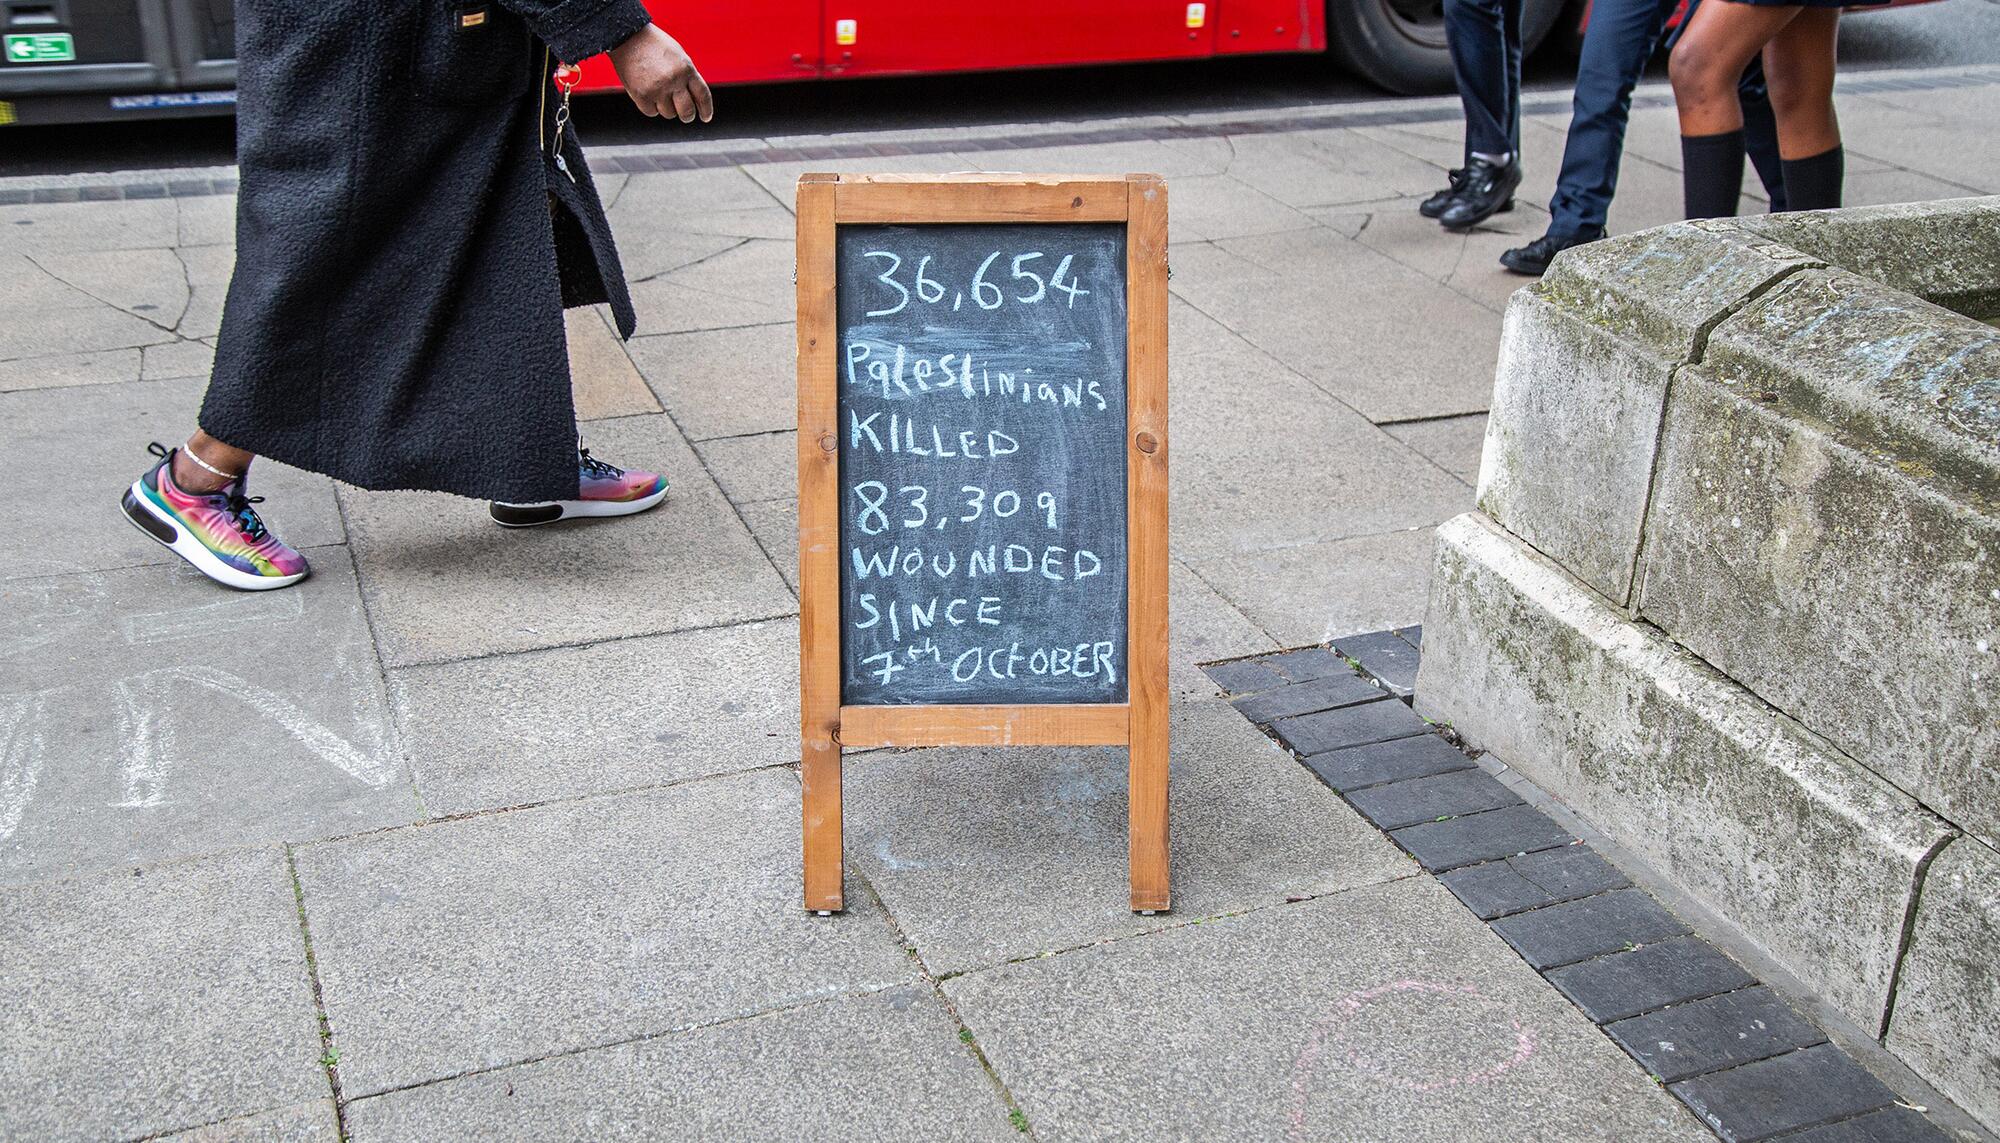 36,654
Palestinians
KILLED
83,309
WOUNDED
SINCE
7th OCTOBER
IN